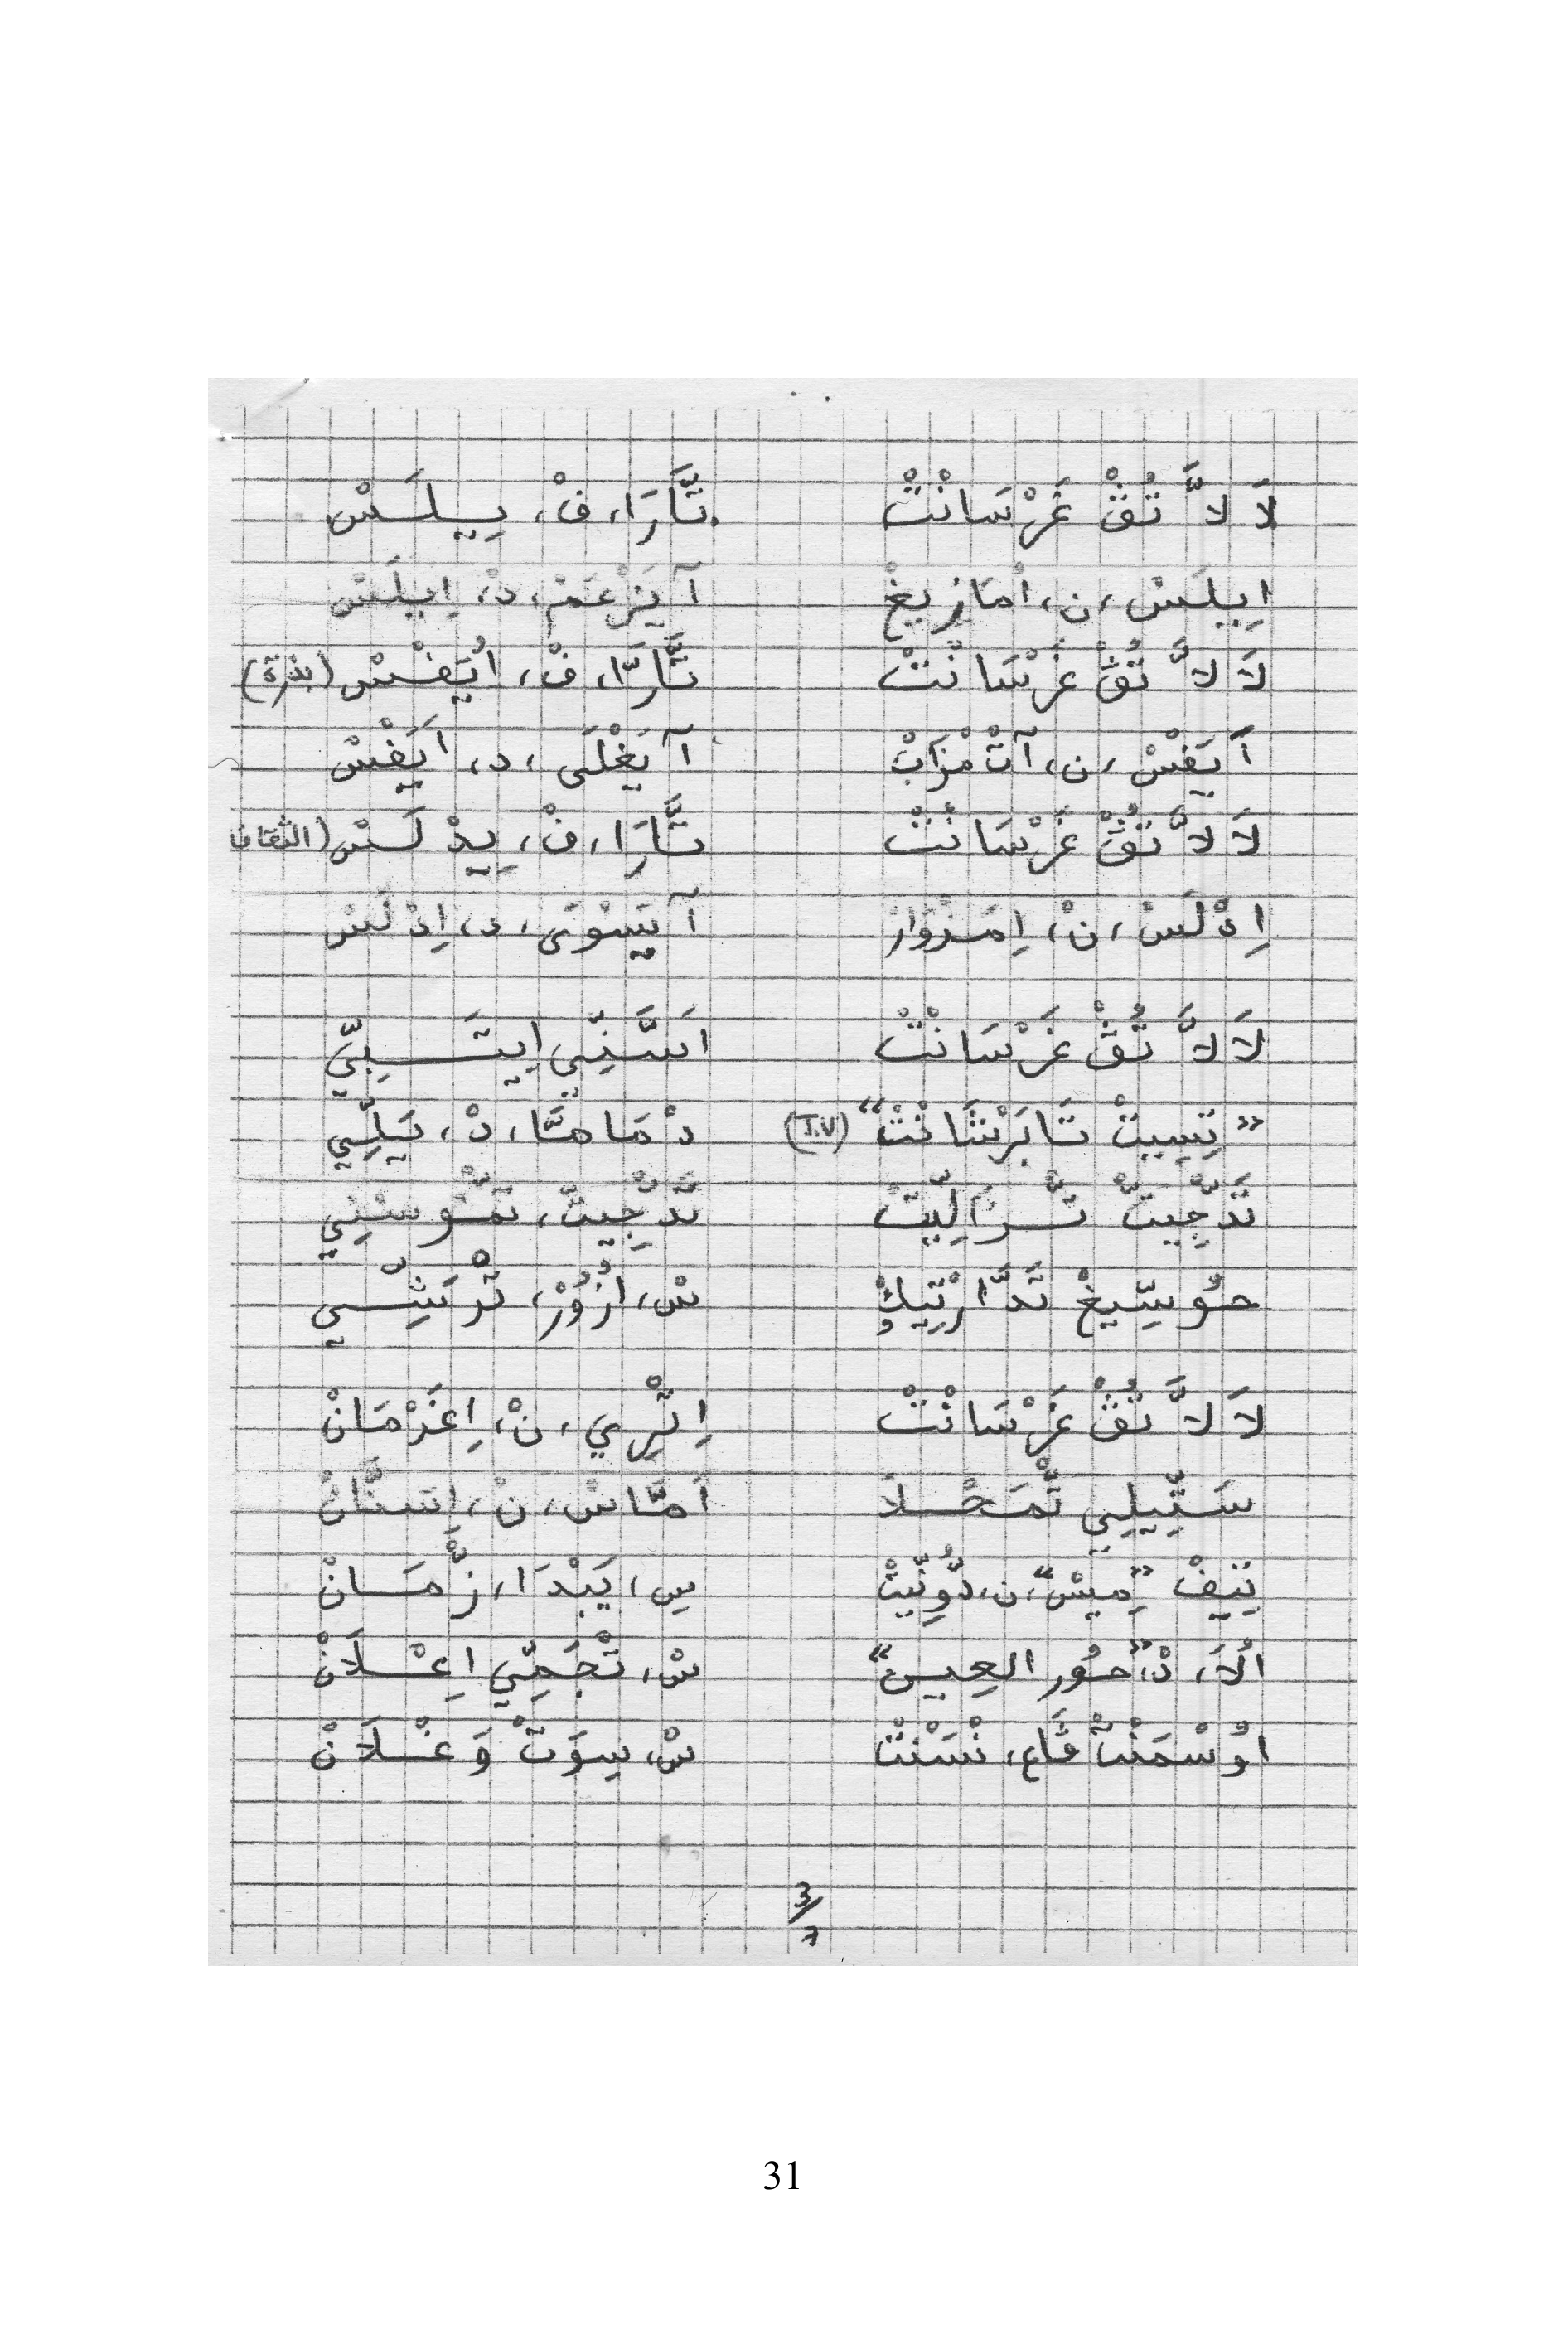 لَا لَّا تُڤْ غَرْسَانْتْ تَّارَا، فْ، يِيلَسْ
اِيِيلَسْ، ن، اُمَازِيغْ آ يَزْعَمْ، دْ، اِيِيلَسْ
لَا لَّا تُڤْ غَرْسَانْتْ تَّارَا، فْ، اُيَفْسْ (بذرة)
أَيَفْسْ، ن، آتْ مْزَابْ آ يَغْلَى، د، اَيَفْسْ
لَا لَّا تُڤْ غَرْسَانْتْ تَّارَا، فْ، يِدْلَسْ (الثقافا
اِدْلَسْ، نْ، اِمَزْوَارْ آ يَسْوَى، د، اِدْلَسْ
لَا لَّا تُڤْ غَرْسَانْتْ اَسَّنِّي اِيتَسِبِّي
”تِسِيتْ تَابَرْشَانْتْ“ (T.V) دْ مَامَّا، دْ، يَلِّي
تَدْجِيتْ تْزَالِّيتْ تَدْجِيتْ، تَمُّوسْنِي
حُوسِّيغْ تَدَّارْتِيكْ سْ، اُزُوْرْ، تَرْشِّي
لَا لَّا تُڤْ غَرْسَانْتْ اِتْرِي، نْ، اِغَرْمَانْ
سَتِّيلِي تْمَحْلَا اَمَّاسْ، نْ، اِسَنَّانْ
تِيفْ ”مِيسْ“، ن، دُّونِّيتْ سِ، يَبْدَا، زَّمَانْ
اُلَا، دْ، ”حُور العِيسْ“ سْ، تْجَمِّي اِعْلَانْ
اوُسْمَنْتْ ڤَاع، نْسَنْتْ سْ، سِوَتْ وَغْلَانْ
3/7
31